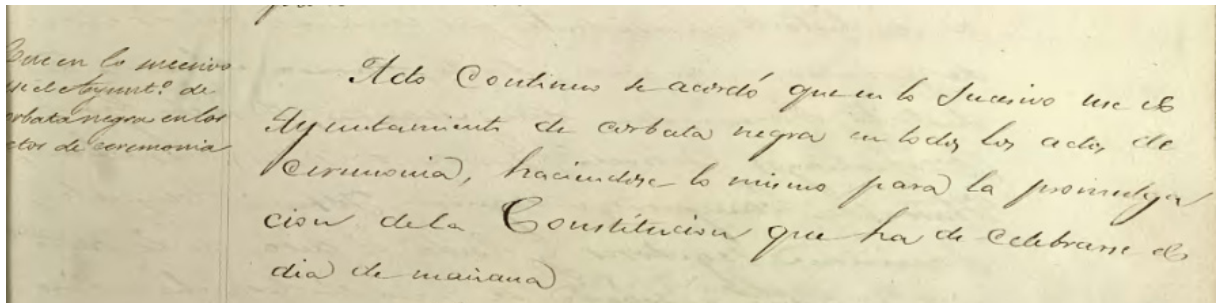 Que en lo sucesivo
use el Ayunt.º de
corbata negra en los
actos de ceremonia
Acto Continuo se acordó que en lo Sucesivo use el
Ayuntamiento de corbata negra en todos los actos de
Ceremonia, haciendose lo mismo para la promulga
cion de la Constitucion que ha de Celebrarse el
dia de mañana